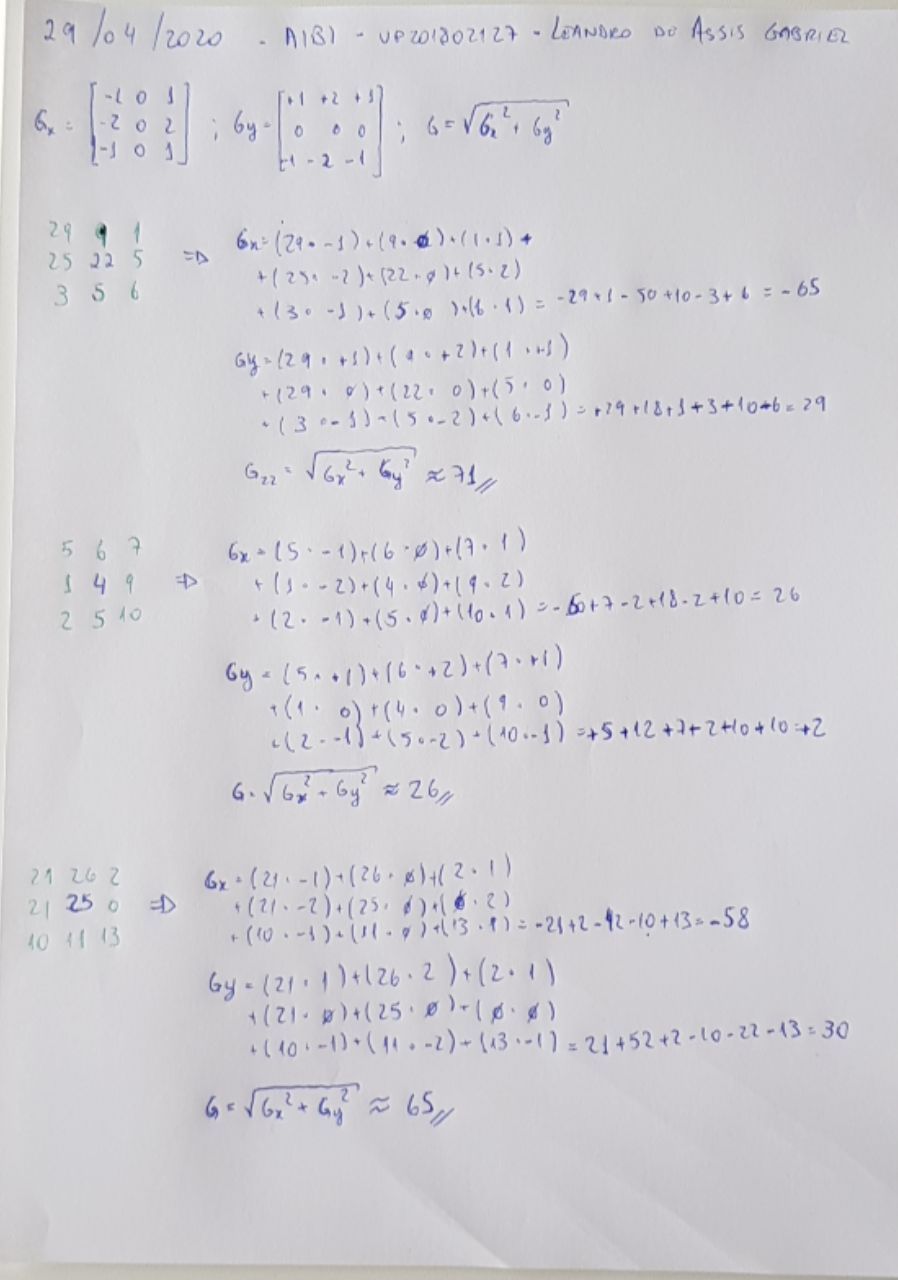 29/04/2020 - A1B1 - UP201802127 - LEANDRO DO ASSIS GABRIEL
Gx = [-1 0 1; -2 0 2; -1 0 1] ; Gy = [+1 +2 +1; 0 0 0; -1 -2 -1] ; G = √(Gx² + Gy²)
29 9 1
25 22 5
3 5 6
⇒ Gx = (29 · -1) + (9 · 0) + (1 · 1) +
+ (25 · -2) + (22 · 0) + (5 · 2)
+ (3 · -1) + (5 · 0) + (6 · 1) = -29 + 1 - 50 + 10 - 3 + 6 = -65
Gy = (29 · +1) + (9 · +2) + (1 · +1)
+ (29 · 0) + (22 · 0) + (5 · 0)
+ (3 · -1) + (5 · -2) + (6 · -1) = +29 + 18 + 1 + 3 + 10 + 6 = 29
G22 = √(Gx² + Gy²) ≈ 71//
5 6 7
1 4 9
2 5 10
⇒ Gx = (5 · -1) + (6 · 0) + (7 · 1)
+ (1 · -2) + (4 · 0) + (9 · 2)
+ (2 · -1) + (5 · 0) + (10 · 1) = + 7 - 2 + 18 - 2 + 10 = 26
Gy = (5 · +1) + (6 · +2) + (7 · +1)
+ (1 · 0) + (4 · 0) + (9 · 0)
+ (2 · -1) + (5 · -2) + (10 · -1) = +5 + 12 + 7 + 2 + 10 + 10 = +2
G = √(Gx² + Gy²) ≈ 26//
21 26 2
21 25 0
10 11 13
⇒ Gx = (21 · -1) + (26 · 0) + (2 · 1)
+ (21 · -2) + (25 · 0) + (0 · 2)
+ (10 · -1) + (11 · 0) + (13 · 1) = -21 + 2 - 42 - 10 + 13 = -58
Gy = (21 · 1) + (26 · 2) + (2 · 1)
+ (21 · 0) + (25 · 0) + (0 · 0)
+ (10 · -1) + (11 · -2) + (13 · -1) = 21 + 52 + 2 - 10 - 22 - 13 = 30
G = √(Gx² + Gy²) ≈ 65//